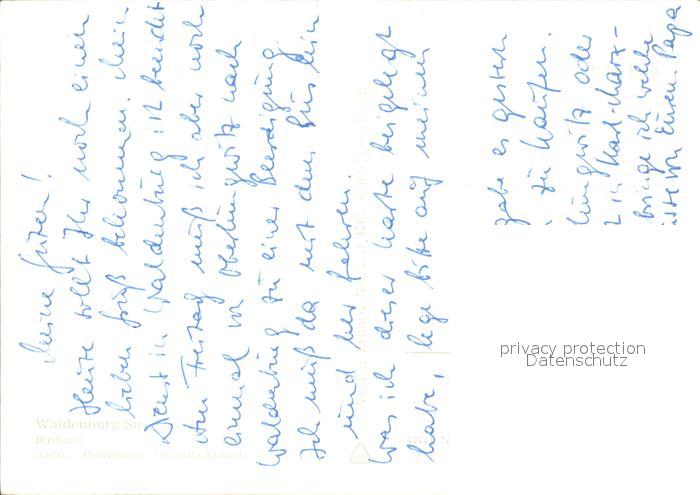 Meine Guten!
Heute sollt Ihr noch einen
lieben Gruß bekommen. Mein
Dienst in Waldenburg ist beendet
Am Freitag muß ich aber noch
einmal von Oberlungwitz nach
Waldenburg zu einer Beerdigung
Ich muß da mit dem Bus hin
und her fahren.
Was ich dieser Karte beigelegt
habe, lege bitte auf meinen
gabe es gestern
zu kaufen.
lungwitz oder
in Karl-Marx-
bringe ich welche
Euren Papa
Waldenburg Sa
Rathaus
privacy protection
Datenschutz